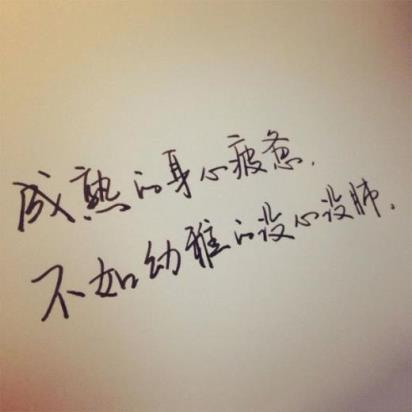 成熟的身心疲惫，
不如幼稚的没心没肺。